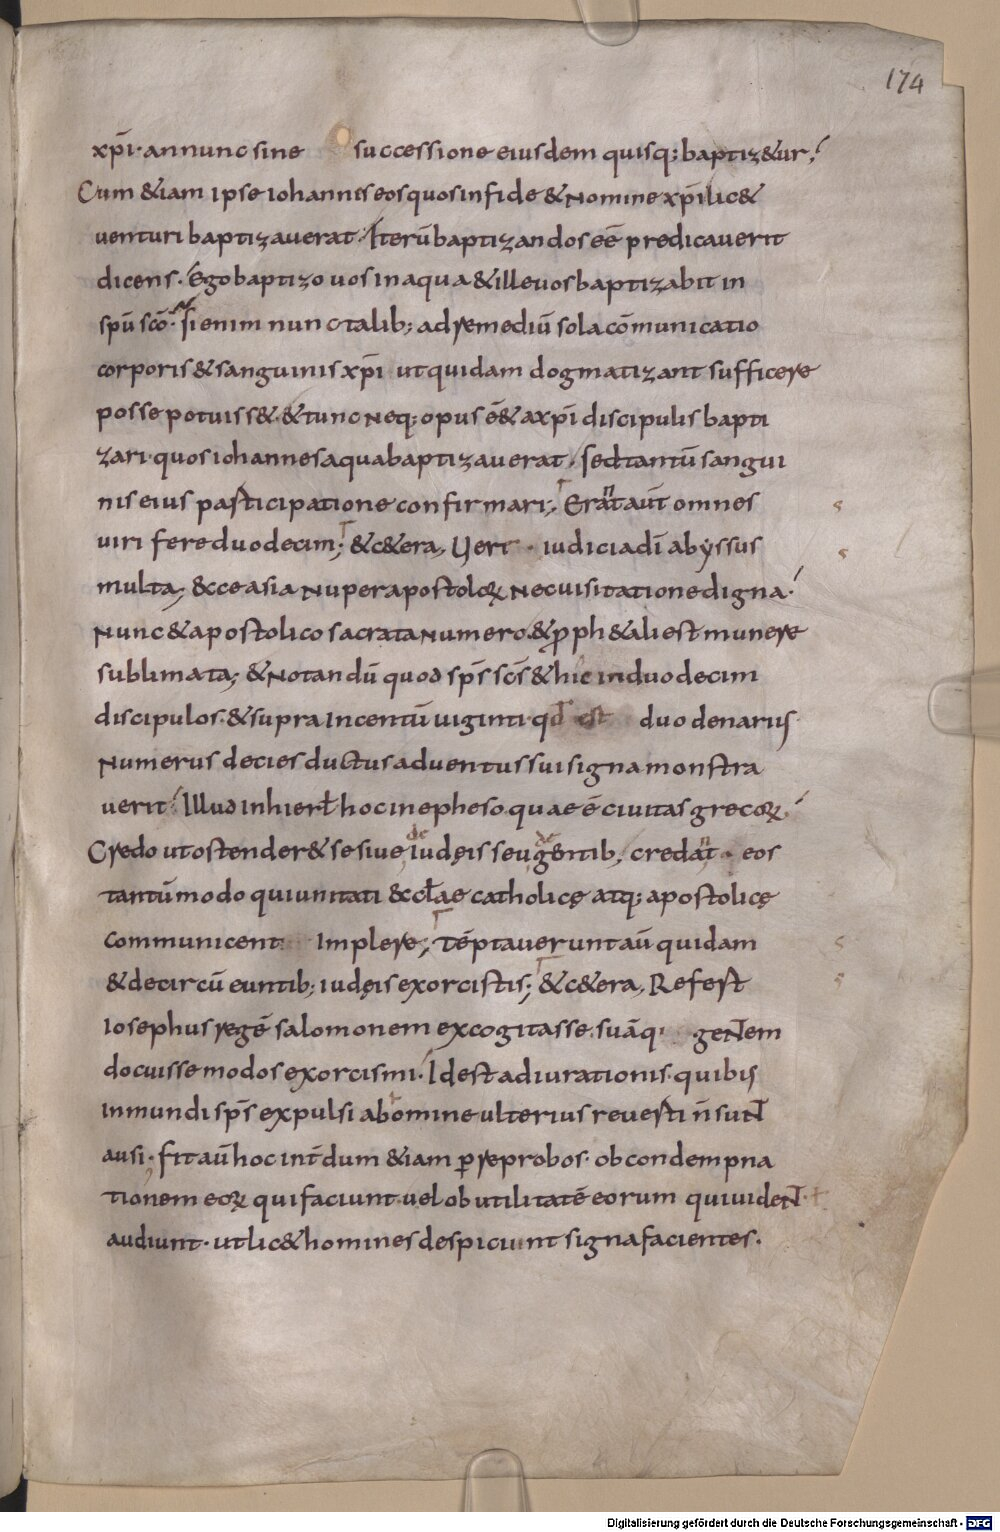 174
xpī· an nunc sine successione eiusdem quisq; baptiz&ur;
Cum &iam ipse iohannis eos quos in fide & nomine xpī lic&
venturi baptizaverat· Iterū baptizandos eē predicaverit
dicens· Ego baptizo vos in aqua & ille vos baptizabit in
spū scō· si enim nunc talib; ad remediū sola cōmunicatio
corporis & sanguinis xpī ut quidam dogmatizant sufficere
posse potuiss& & tunc neq; opus ē& a xpī discipulis bapti
zari quos iohannes aqua baptizaverat· sed tantū sangui
nis eius participatione confirmari; Erant aūt omnes
viri fere duodecim; & c&era, Vere · iudicia dī abyssus
multa; &cce asia nuper apostoloꝝ nec visitatione digna·
Nunc & apostolico sacrata numero & ꝓph&ali est munere
sublimata; & notandū quod sp̄s sc̄s & hic in duodecim
discipulos & supra in centū viginti qd̄ est duodenarius
numerus decies ductus adventus sui signa monstra
verit· Illud in hierl̄ hoc in epheso quae ē civitas grecoꝝ·
Credo ut ostender& se sive de iudęis seu de gentib; credant · eos
tantūmodo qui unitati &cl̄ae catholicę atq; apostolicę
communicent implere; Tēptaverunt aū quidam
& de circūeuntib; iudęis exorcistis; & c&era, Refest
Iosephus regē salomonem excogitasse· suāq· gentem
docuisse modos exorcismi· Id est adiurationis quibus
inmundi sp̄s expulsi ab omine ulterius reverti n̄ sunt
ausi· fit aū hoc int̄dum &iam ꝑ reprobos· ob condempna
tionem eoꝝ qui faciunt vel ob utilitatē eorum qui vident ·ł·
audiunt· ut lic& homines despiciunt signa facientes·
Digitalisierung gefördert durch die Deutsche Forschungsgemeinschaft - DFG